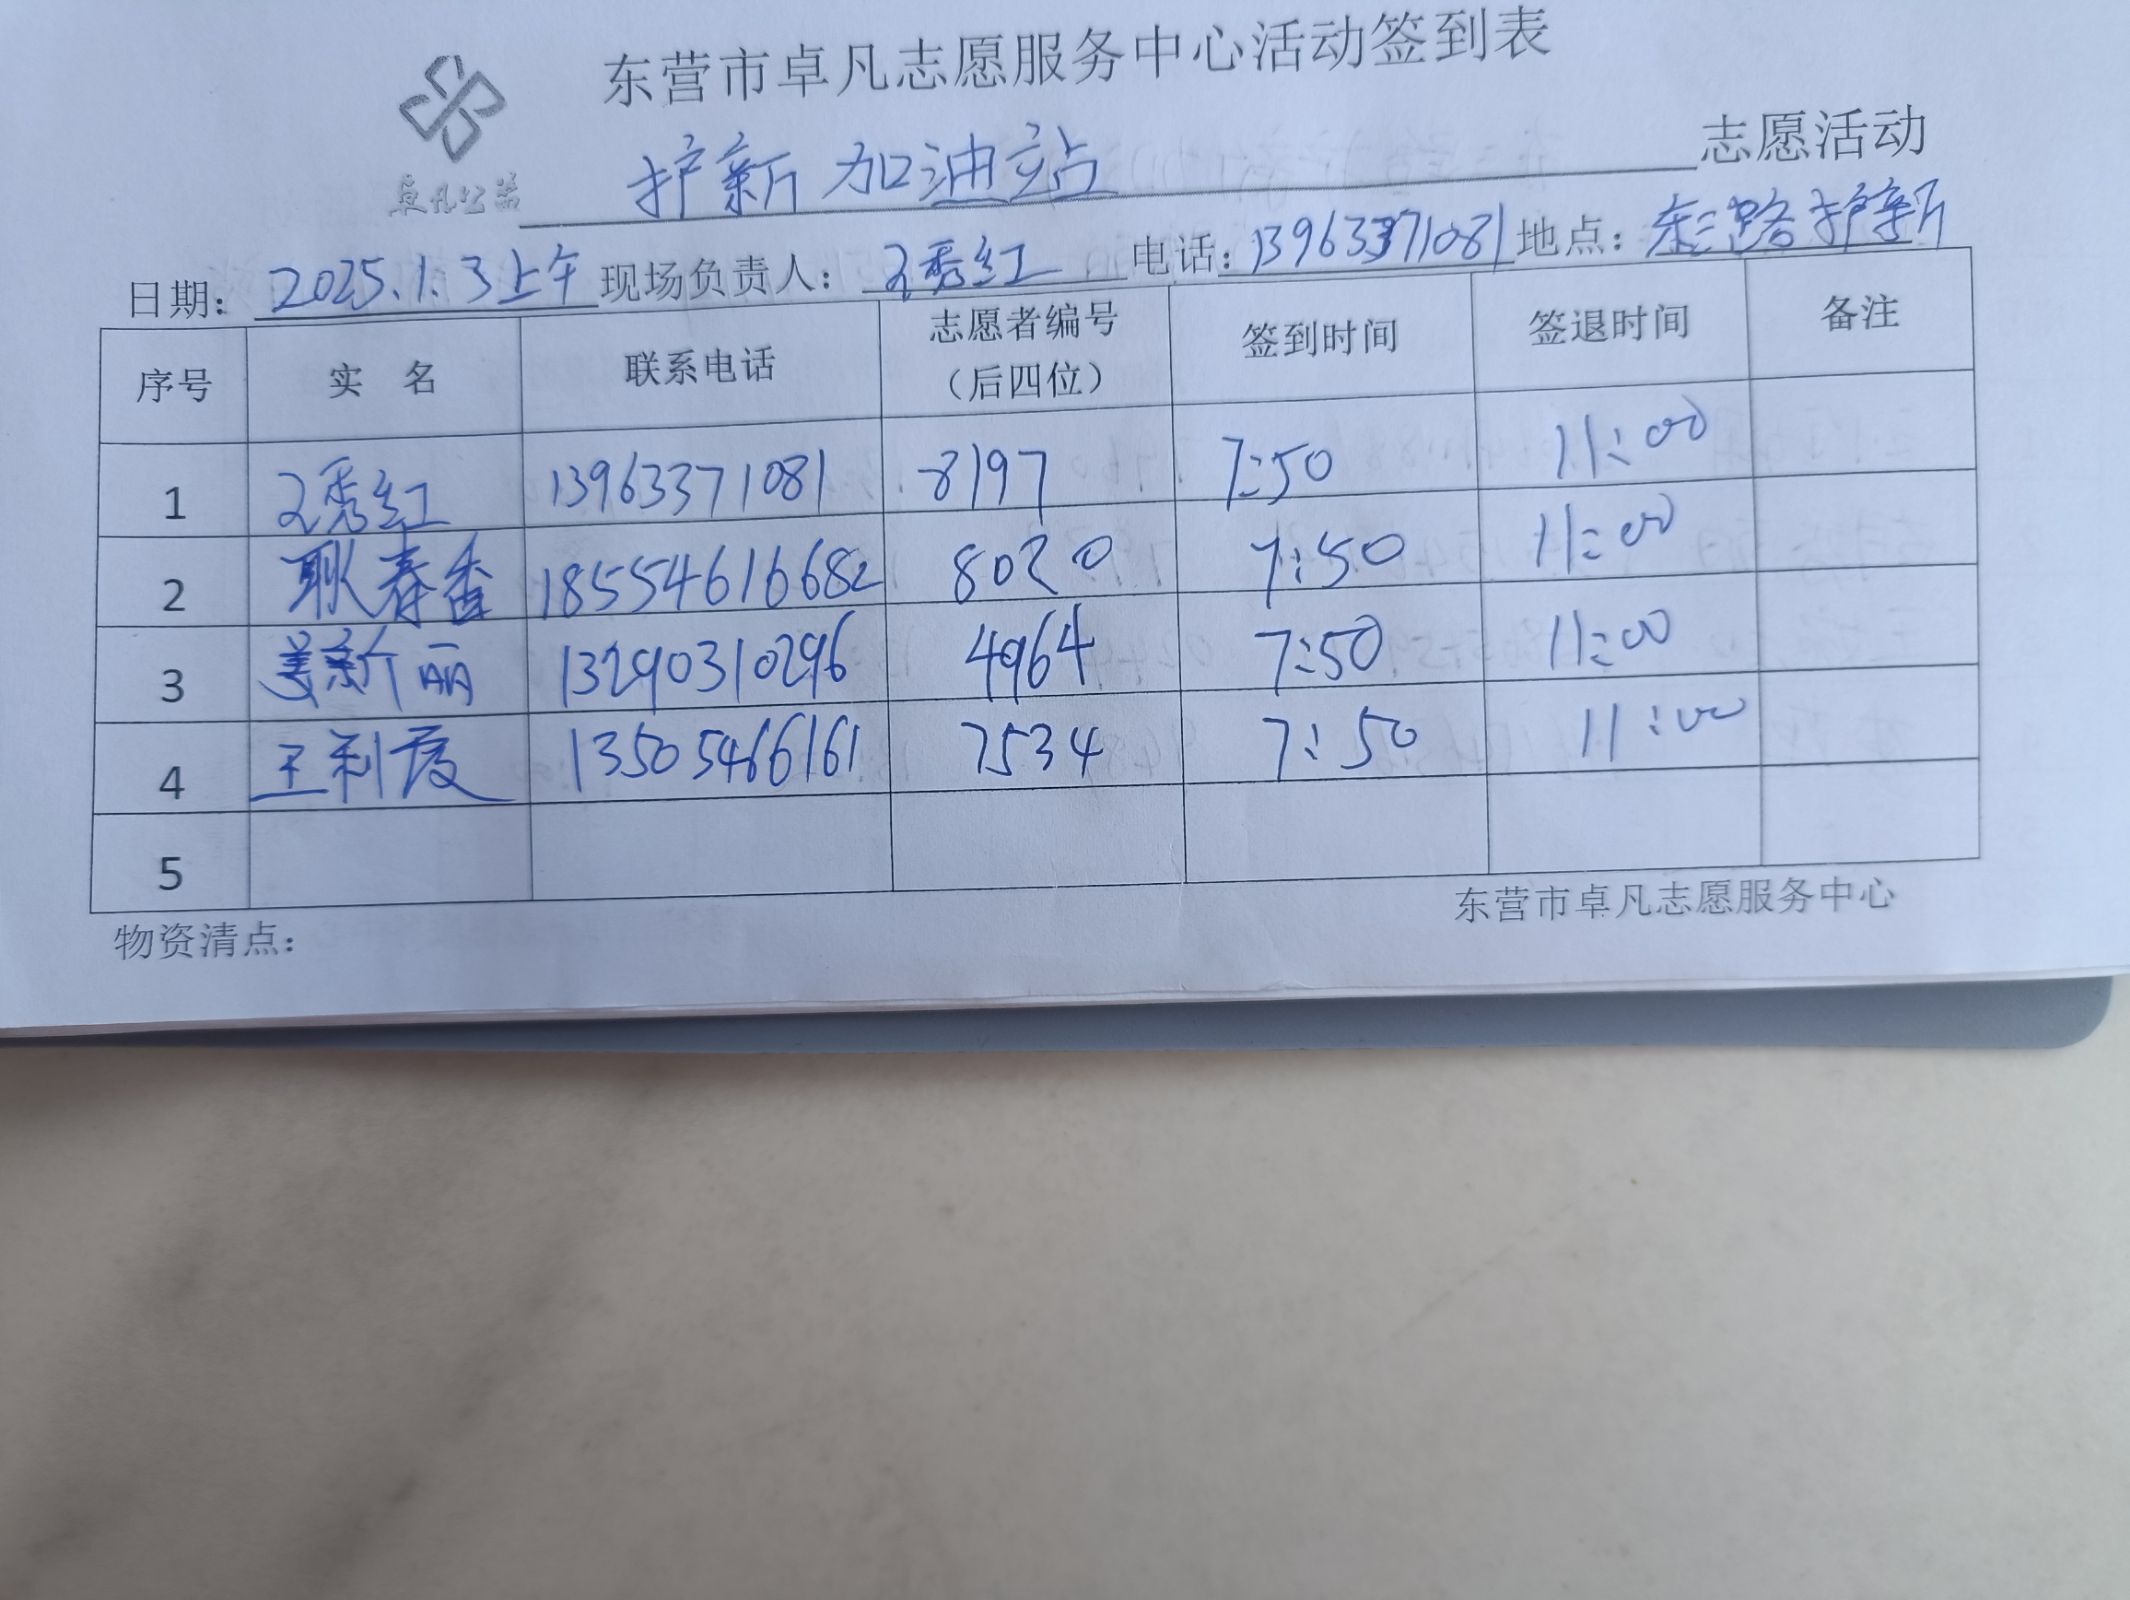 东营市卓凡志愿服务中心活动签到表
卓凡公益
护新加油站 志愿活动
日期: 2025.1.3上午 现场负责人: 秀红 电话: 13963371081 地点: 东三路护新
序号 实 名 联系电话 志愿者编号(后四位) 签到时间 签退时间 备注
1 秀红 13963371081 8197 7:50 11:00
2 耿春香 18554616682 8020 7:50 11:00
3 姜新丽 13290310296 4964 7:50 11:00
4 王利霞 13505466161 7534 7:50 11:00
5
物资清点:
东营市卓凡志愿服务中心